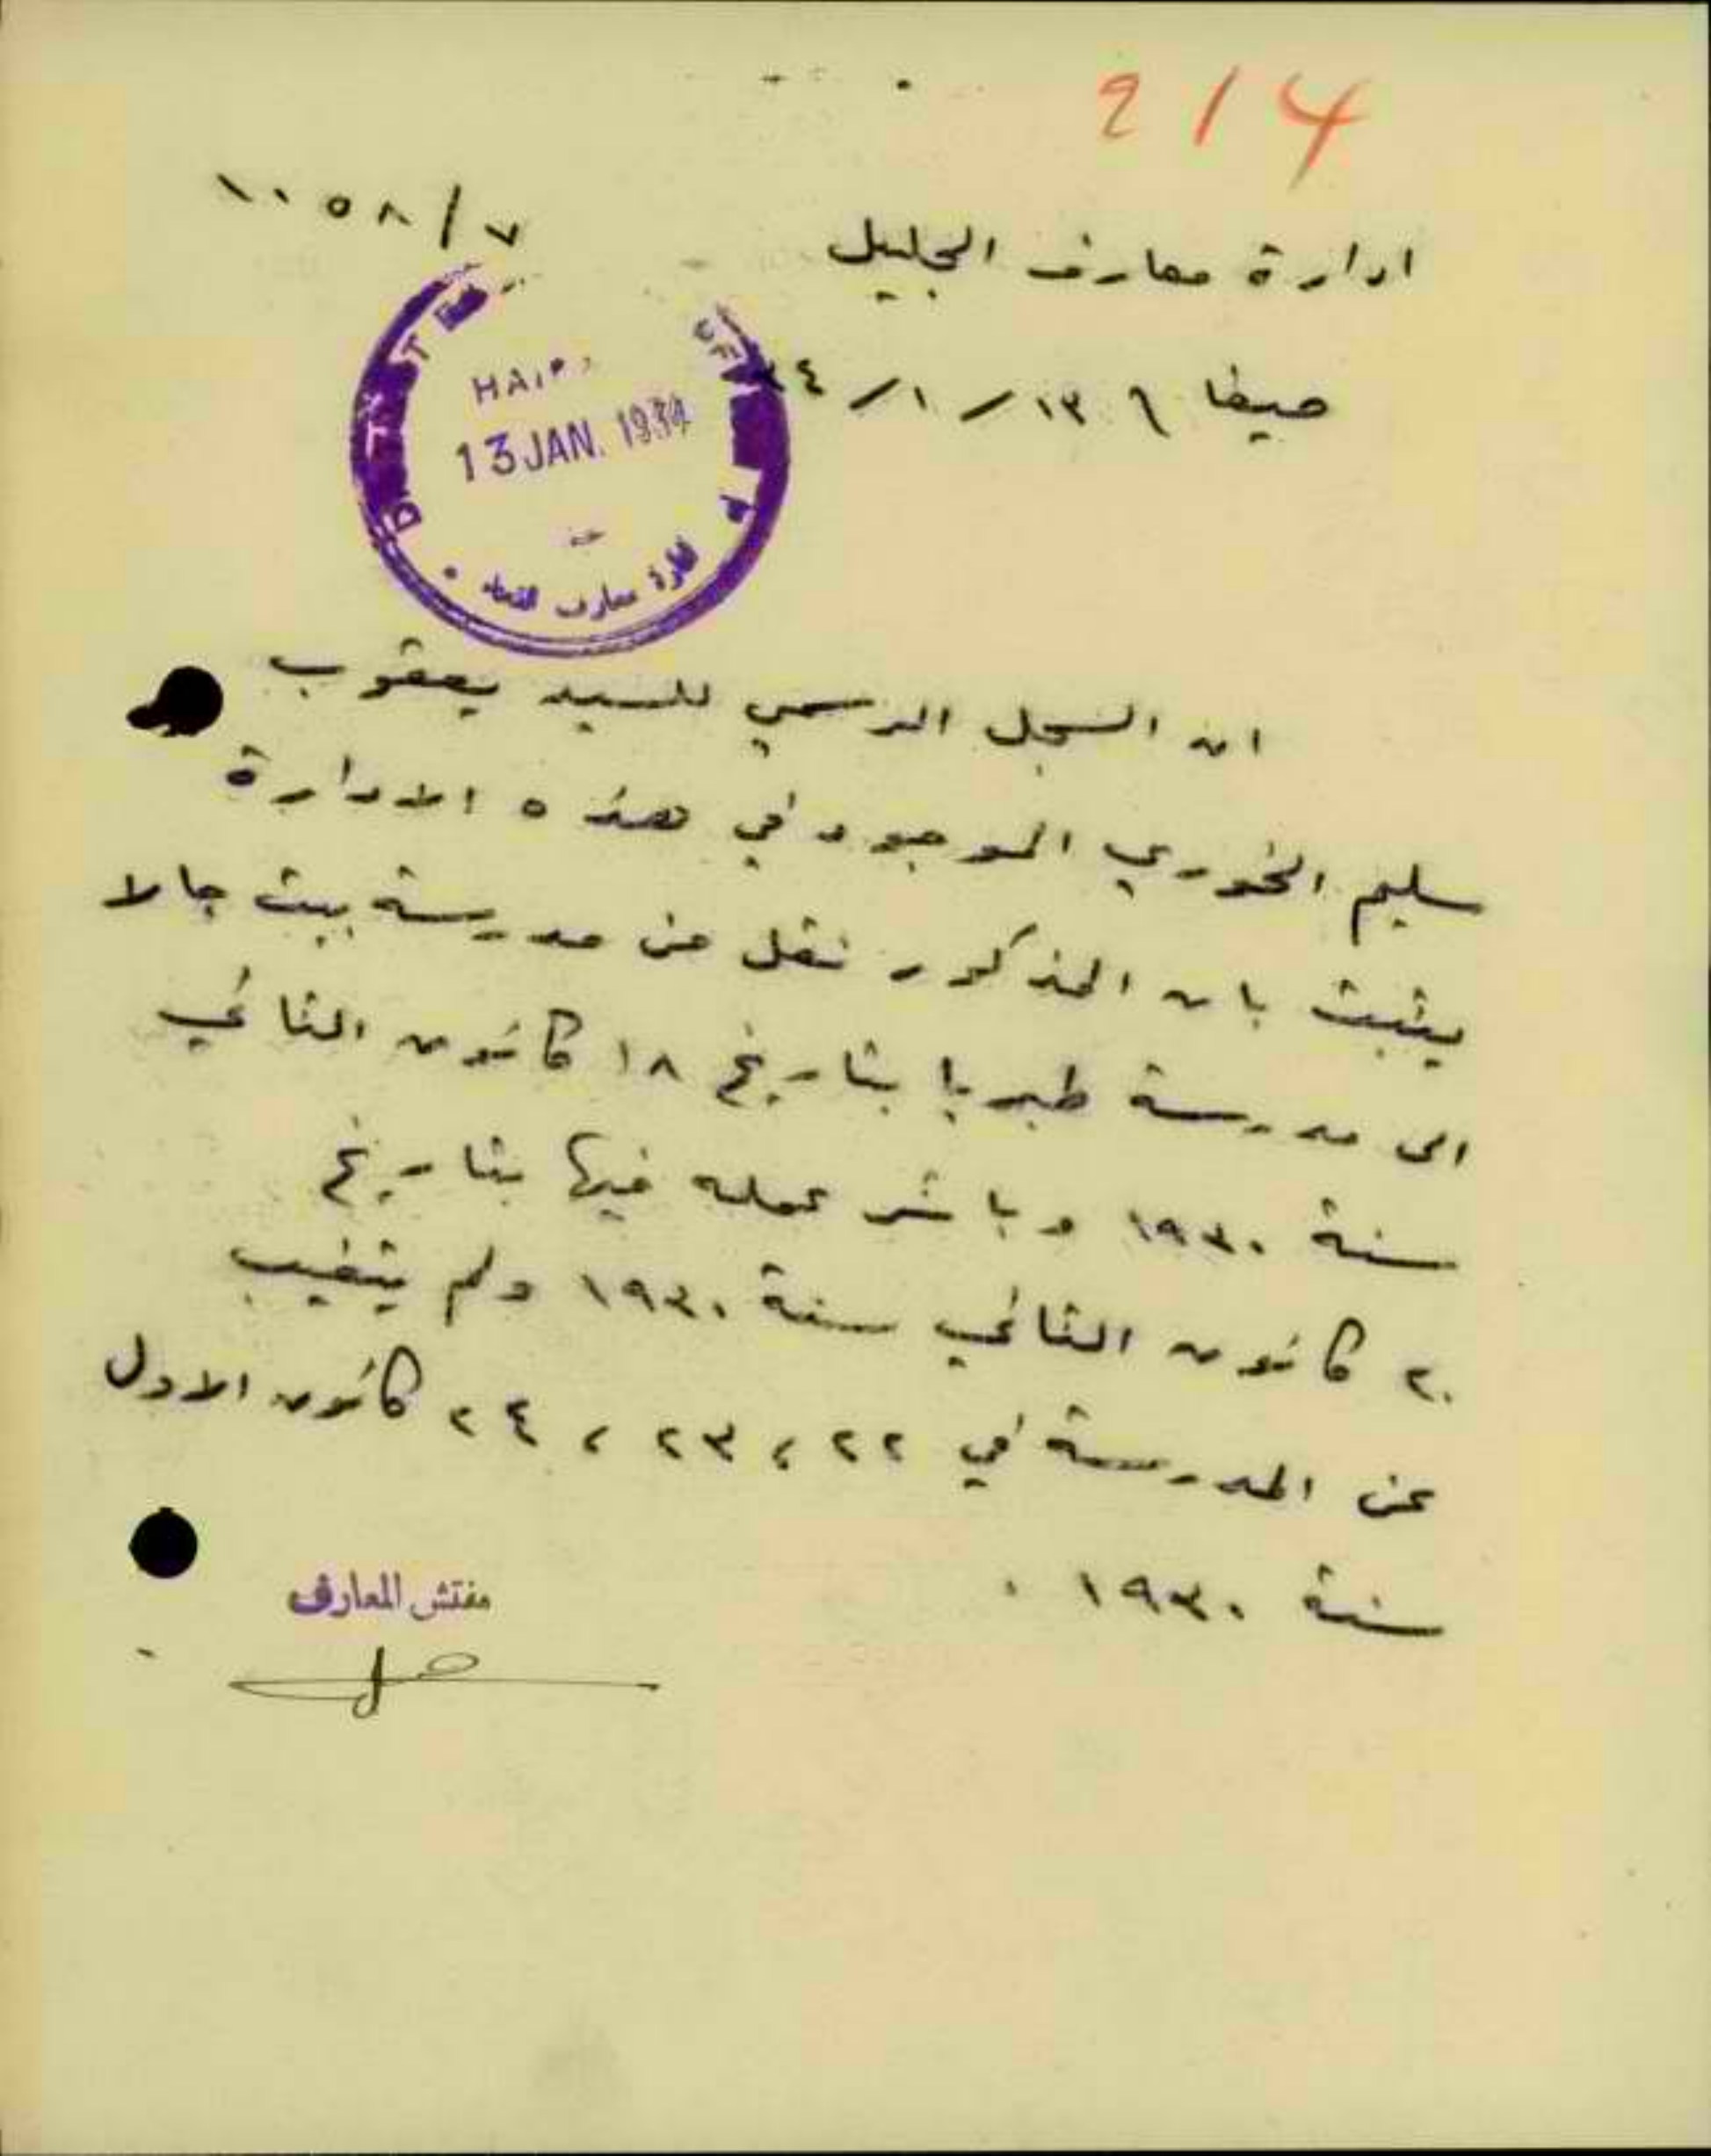 214
١٠٠٥٨/٧
ادارة معارف الجليل
حيفا ٦ ١٣/١/٣٤
HAIF
13 JAN. 1934
ادارة معارف القضاء
ان السجل الرسمي للسيد يعقوب
سليم الخوري الموجود في هذه الادارة
يثبت بان المذكور نقل من مدرسة بيت جالا
الى مدرسة طبريا بتاريخ ١٨ كانون الثاني
سنة ١٩٣٠ وباشر عمله فيها بتاريخ
٢٠ كانون الثاني سنة ١٩٣٠ ولم يتغيب
عن المدرسة في ٢٢ ، ٢٣ ، ٢٤ كانون الاول
سنة ١٩٣٠ .
مفتش المعارف